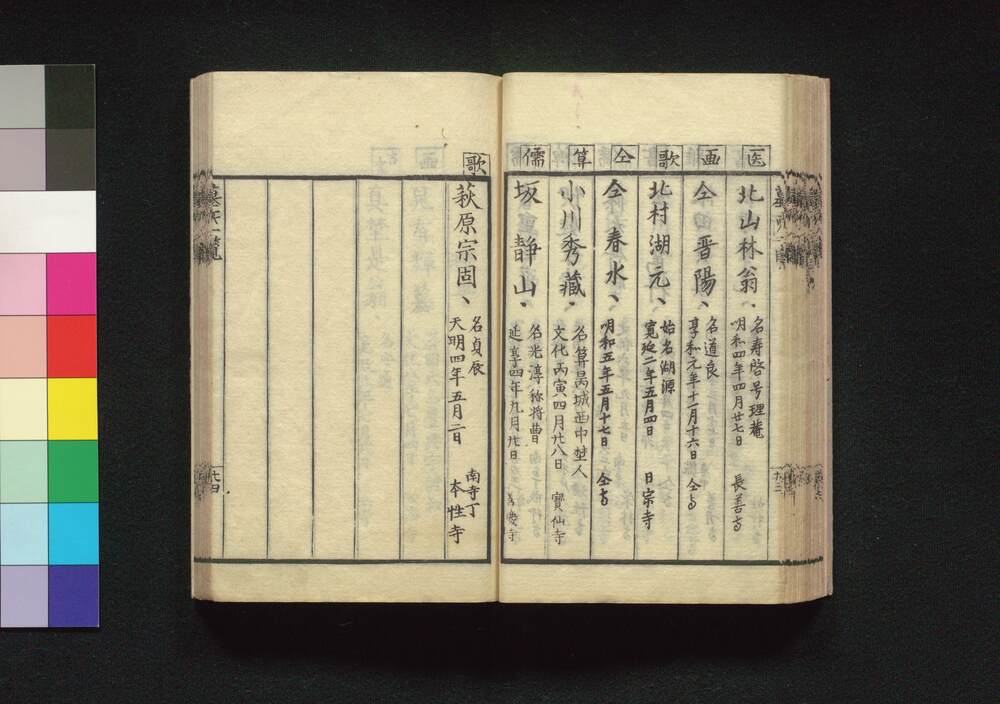 医
北山林翁、
名寿啓号理菴
明和四年四月廿七日
長善寺
画
仝田晋陽、
名道良
享和元年十一月十六日
仝寺
歌
北村湖元、
始名湖源
寛延二年五月四日
日宗寺
仝
仝春水、
明和五年五月十七日
仝寺
算
小川秀藏、
名算昜城西中埜人
文化丙寅四月廿八日
寳仙寺
儒
坂静山、
名光淳称将曹
延享四年九月廿日
歌
萩原宗固、
名貞辰
天明四年五月二日
南寺丁
本性寺
墓所一覧
廿四